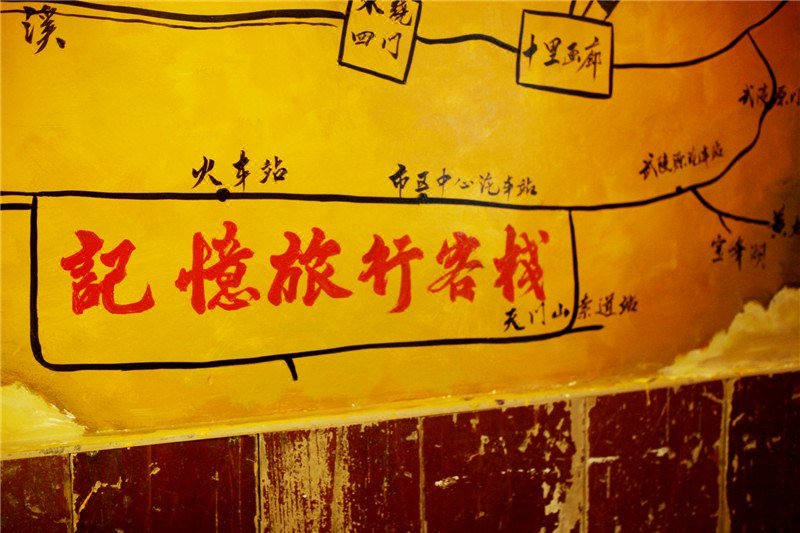 溪
四门
十里画廊
武陵源
火车站
市区中心汽车站
武陵源汽车站
記憶旅行客栈
宝峰湖
天门山索道站